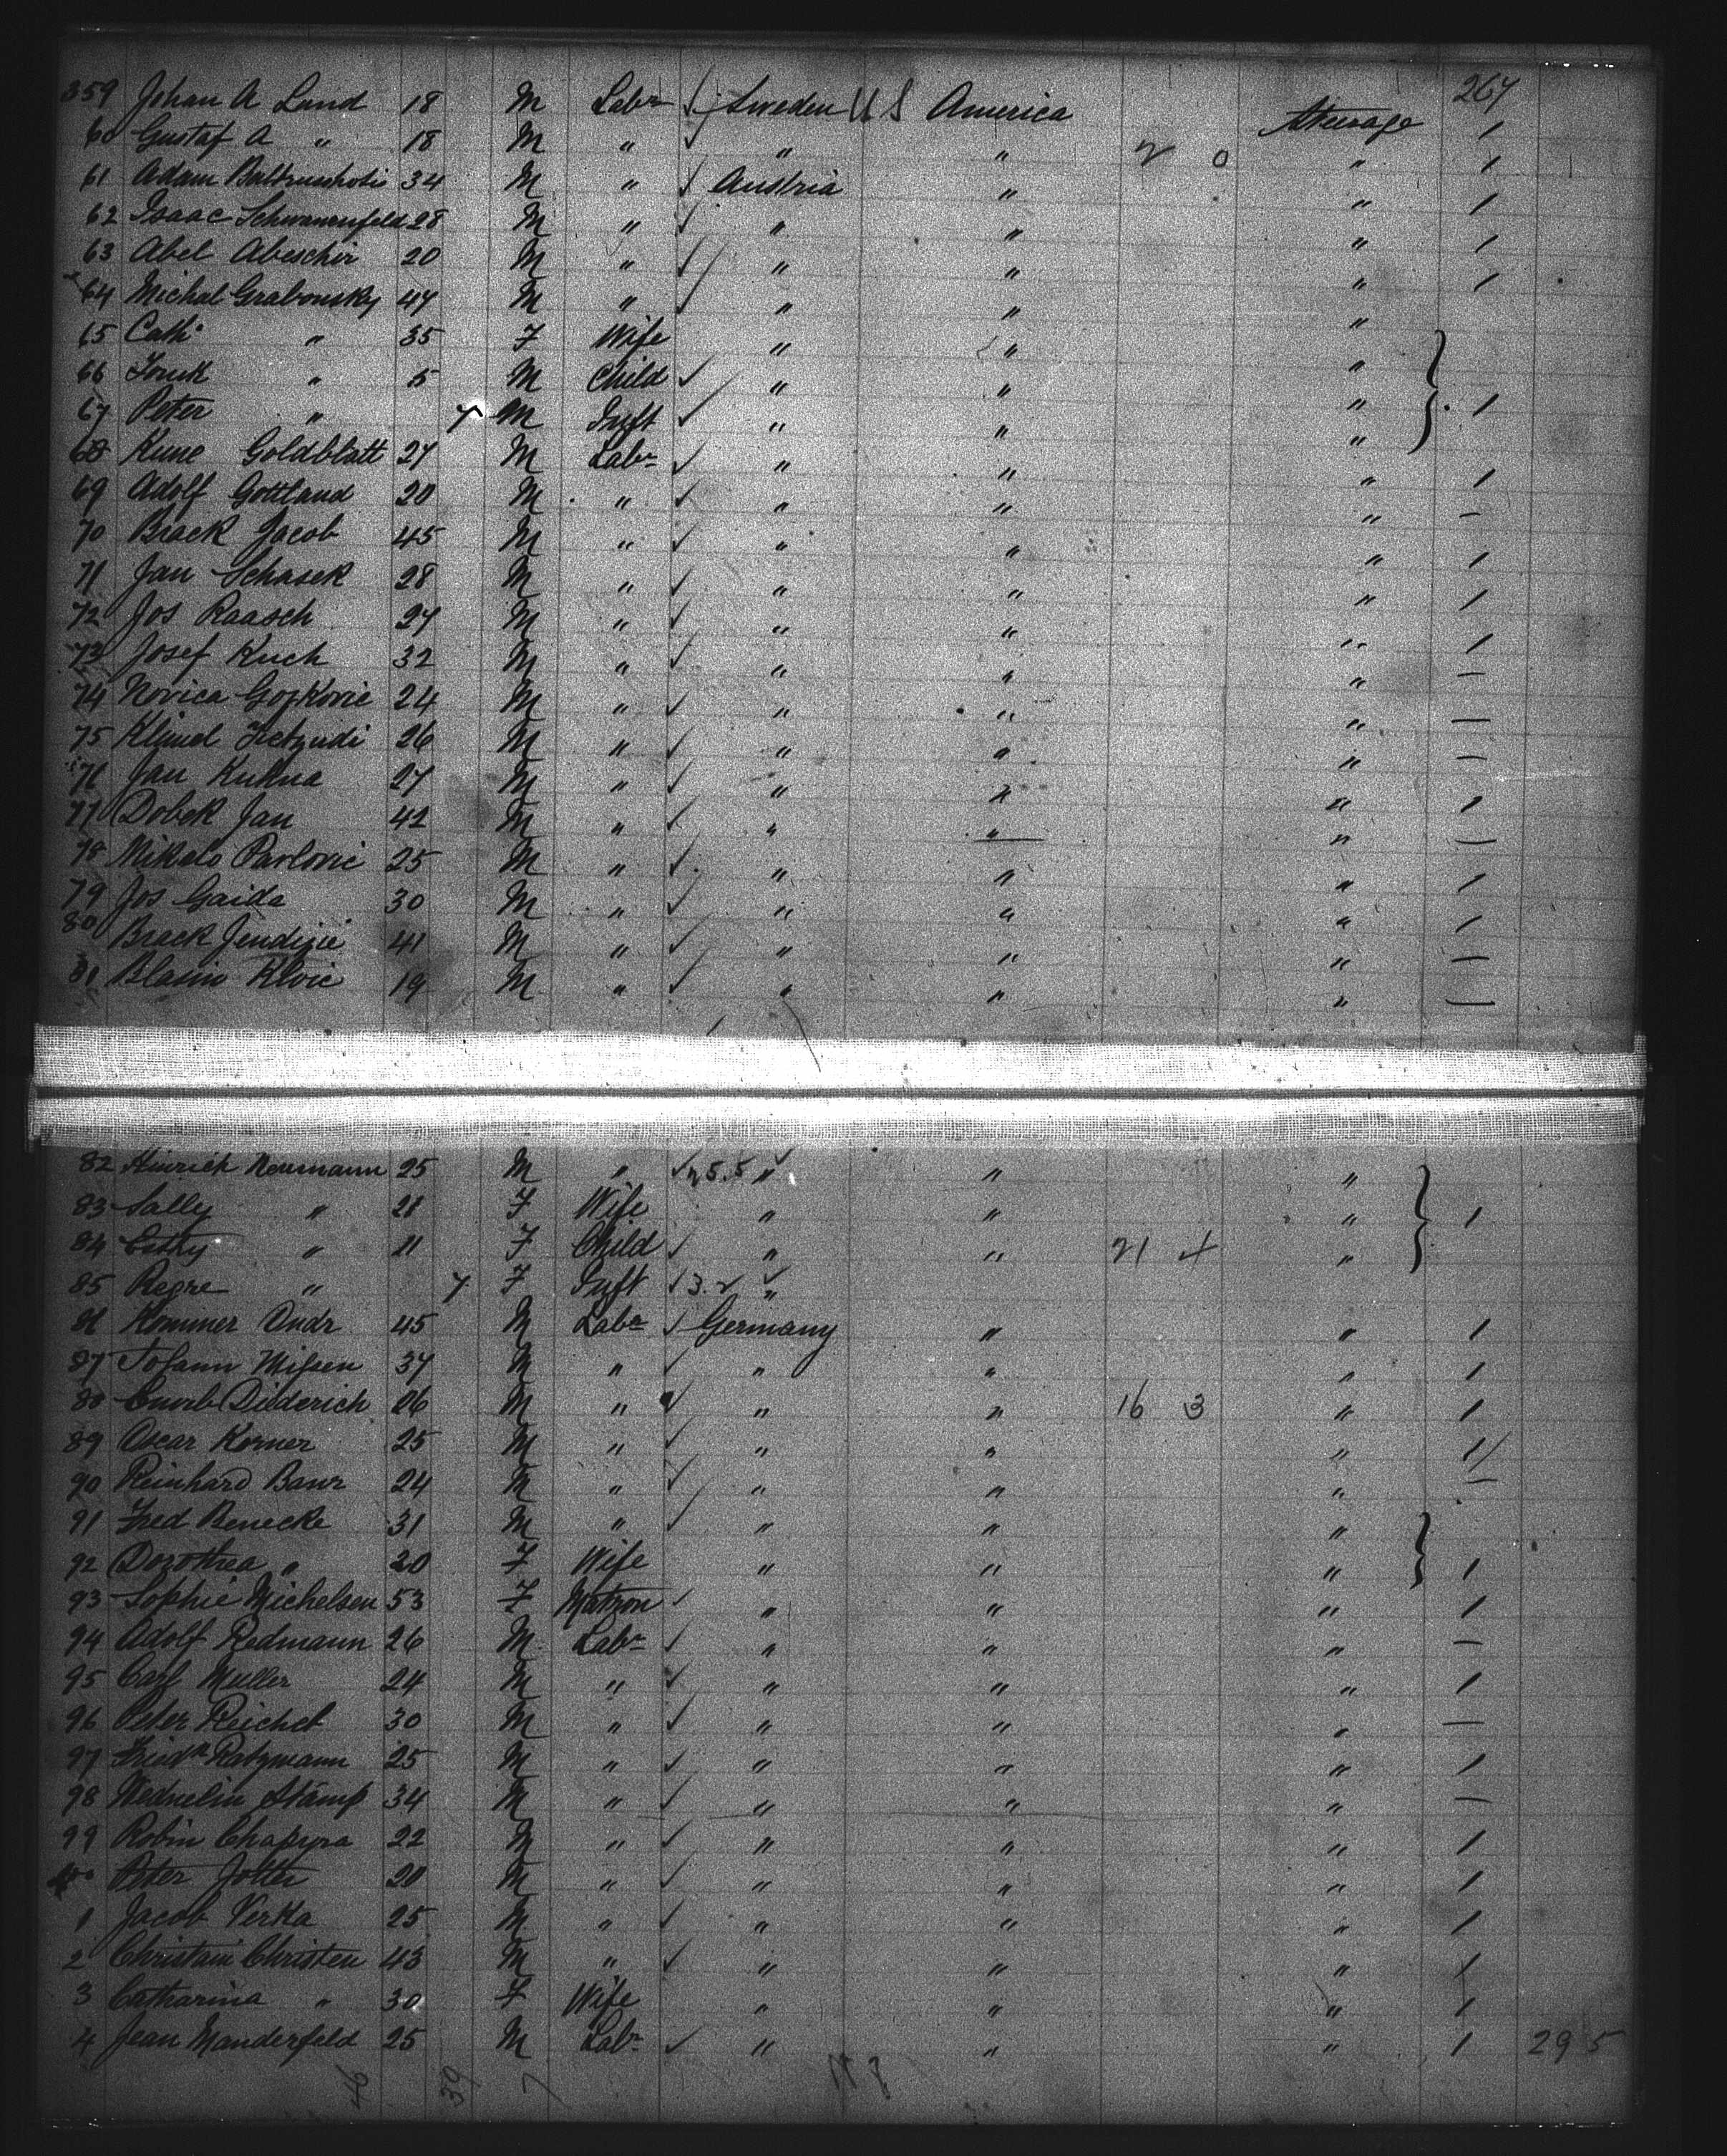 267
359 Johan A Lund 18 M Labr Sweden U S America Steerage 1
60 Gustaf A " 18 M " " " 2 0 " 1
61 Adam 34 M " Austria " " 1
62 Isaac Schwanenfeld 28 M " " " " 1
63 Abel Abeschir 20 M " " " " 1
64 Michal Grabousky 47 M " " " "
65 Cath " 35 F Wife " " "
66 " 5 M Child " " " 1
67 Peter " 7 M Inft " " "
68 Kune Goldblatt 27 M Labr " " " 1
69 Adolf Gottland 20 M " " " " —
70 Brack Jacob 45 M " " " " 1
71 Jan Schasek 28 M " " " " 1
72 Jos Raasch 27 M " " " " 1
73 Josef Kuch 32 M " " " " —
74 Novica Goskovic 24 M " " " " —
75 26 M " " " " —
76 Jan Kuhna 27 M " " " " 1
77 Dobek Jan 42 M " " " " —
78 Nikolo Pavlovic 25 M " " " " 1
79 Jos Gaida 30 M " " " " 1
80 Brack 41 M " " " " —
81 Blasin Klvic 19 M " " " " —
82 Hinrich Neumann 25 M " 25.5 " " "
83 Sally " 21 F Wife " " " 1
84 Esthy " 11 F Child " " 21 4 "
85 Regre " 7 F Inft 3.2 "
86 Kommer Ondr 45 M Labr Germany " " 1
87 Johann Nissen 37 M " " " " 1
88 Diederich 26 M " " " 16 3 " 1
89 Oscar Korner 25 M " " " " 1/
90 Reinhard Baur 24 M " " " " —
91 Fred Benecke 31 M " " " "
92 Dorothea " 20 F Wife " " " 1
93 Sophie Michelsen 53 F Matron " " " 1
94 Adolf Redmann 26 M Labr " " " —
95 Carl Muller 24 M " " " " 1
96 Peter Reichel 30 M " " " " —
97 Friedk Ratzmann 25 M " " " " 1
98 Wednelin Stamp 34 M " " " " —
99 Robin Chapyra 22 M " " " " 1
400 Peter Jotter 20 M " " " " 1
1 Jacob Verka 25 M " " " " 1
2 Christain Christen 43 M " " " " 1
3 Catharina " 30 F Wife " " " 1
4 Jean Manderfeld 25 M Labr " " " 1 29 5
46 39 7